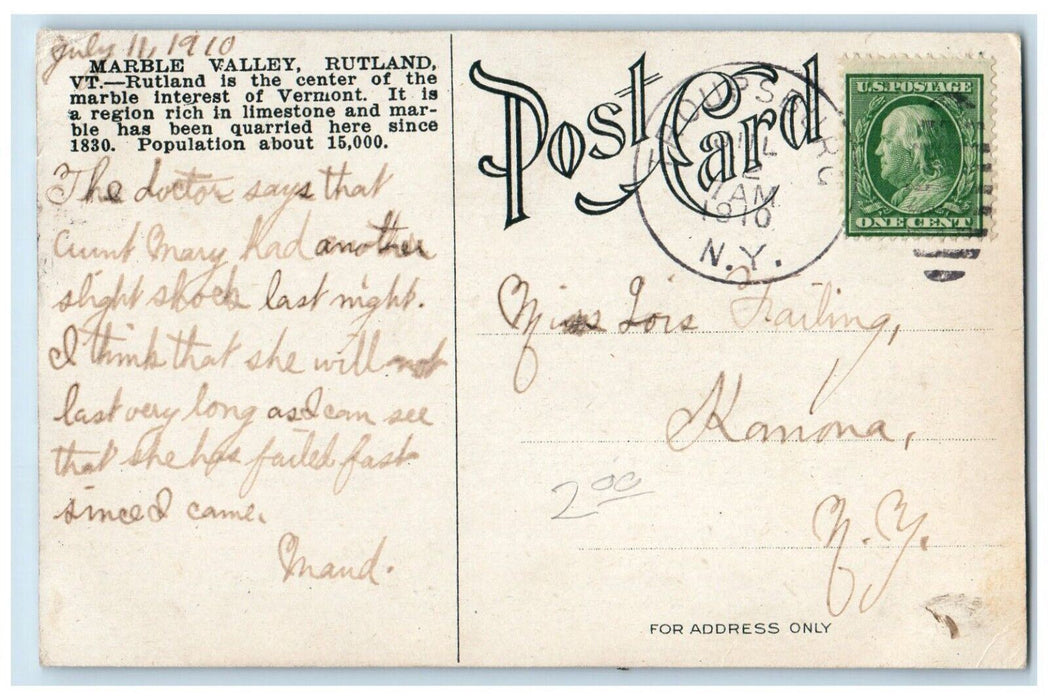 July 11, 1910
MARBLE VALLEY, RUTLAND,
VT.—Rutland is the center of the
marble interest of Vermont. It is
a region rich in limestone and mar-
ble has been quarried here since
1830. Population about 15,000.
The doctor says that
Aunt Mary had another
slight shock last night.
I think that she will not
last very long as I can see
that she has failed fast
since I came.
Maud.
Post Card
TROUPSBURG
JUL
12
AM
1910
N.Y.
U.S. POSTAGE
ONE CENT
Miss Lois Failing,
Kanona,
2 00
N.Y.
FOR ADDRESS ONLY